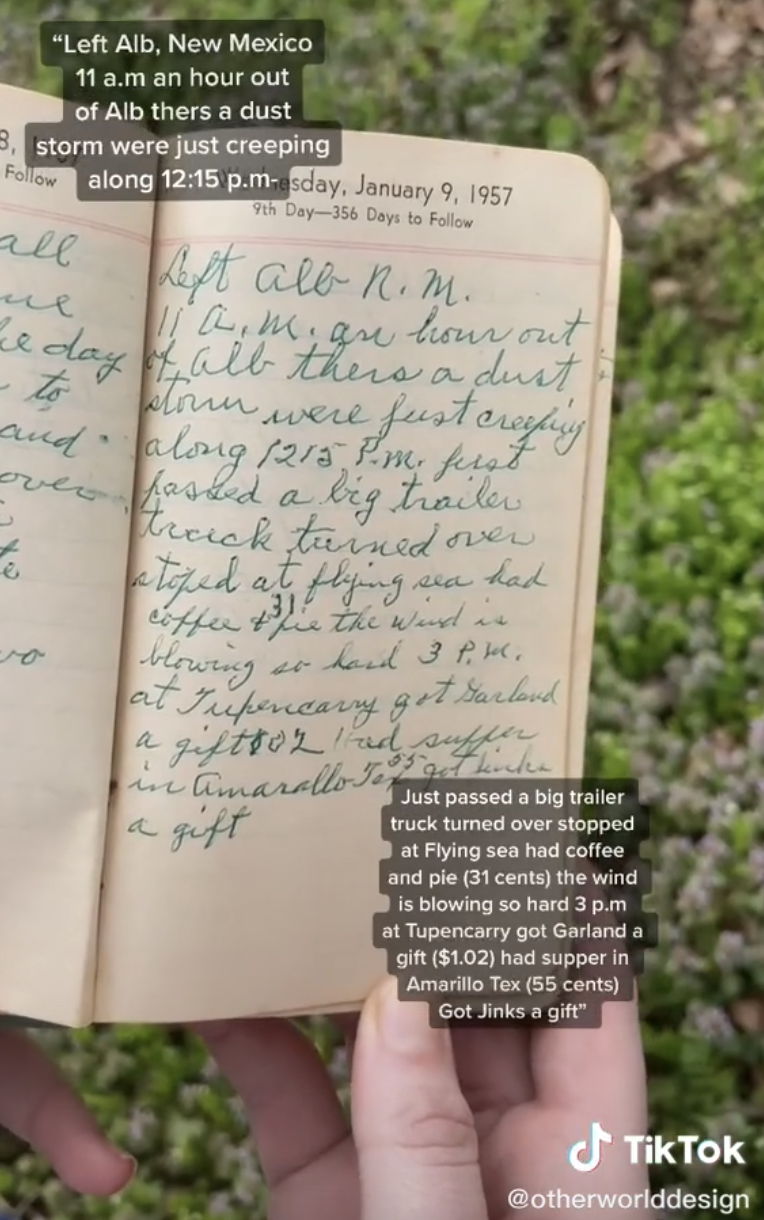 “Left Alb, New Mexico
11 a.m an hour out
of Alb thers a dust
storm were just creeping
along 12:15 p.m-
8,
Follow
sday, January 9, 1957
9th Day—356 Days to Follow
all
me
he day
to
and
over
te
Left Alb N. M.
11 A.M. an hour out
of Alb thers a dust
storm were just creeping
along 1215 P.M. just
passed a big trailer
truck turned over
stoped at flying sea had
31
coffee + pie the wind is
blowing so hard 3 P.M.
at Tupencarry got Garland
a gift Had supper
55
in Amarallo Tex got Jinks
a gift
Just passed a big trailer
truck turned over stopped
at Flying sea had coffee
and pie (31 cents) the wind
is blowing so hard 3 p.m
at Tupencarry got Garland a
gift ($1.02) had supper in
Amarillo Tex (55 cents)
Got Jinks a gift”
TikTok
@otherworlddesign